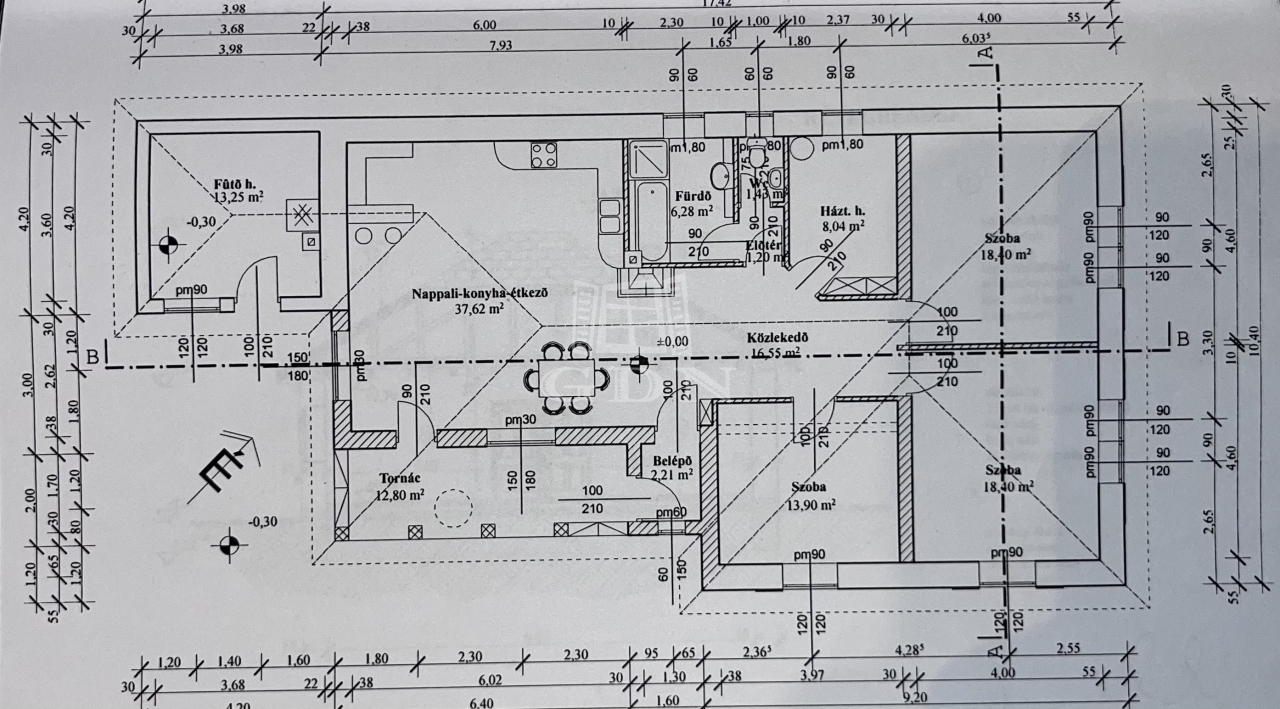 17,42
3,98
30 3,68 22 38 6,00 10 2,30 10 1,00 10 2,37 30 4,00 55
3,98 7,93 1,65 1,80 6,03⁵
A
90 60
60 60
90 60
pm1,80
Fűtő h.
13,25 m²
-0,30
pm90
120 120
100 210
150
180
pm60
Nappali-konyha-étkező
37,62 m²
Fürdő
6,28 m²
90
210
1,43 m
90 210
Előtér
1,20 m
Házt. h.
8,04 m²
90 210
Szoba
18,40 m²
Közlekedő
16,55 m²
±0,00
GDN
100
210
100
210
B
B
90 210
pm30
150 180
100 210
100 210
Tornác
12,80 m²
100
210
Belépő
2,21 m²
pm60
60 150
Szoba
13,90 m²
Szoba
18,40 m²
pm90
pm90
120 120
120 120
A
É
-0,30
pm90
pm90
90
120
90
120
pm90
pm90
90
120
90
120
4,20 3,00 2,00 1,20
30 3,60 30 2,62 38 1,70 30 65 55
4,20 1,20 1,80 1,20 80 1,20
2,65 90 3,30 90 2,65
30 25 4,60 10 4,60 55
10,40
1,20 1,40 1,60 1,80 2,30 2,30 95 65 2,36⁵ 4,28⁵ 2,55
30 3,68 22 38 6,02 30 1,30 38 3,97 30 4,00 55
4,20 6,40 1,60 9,20